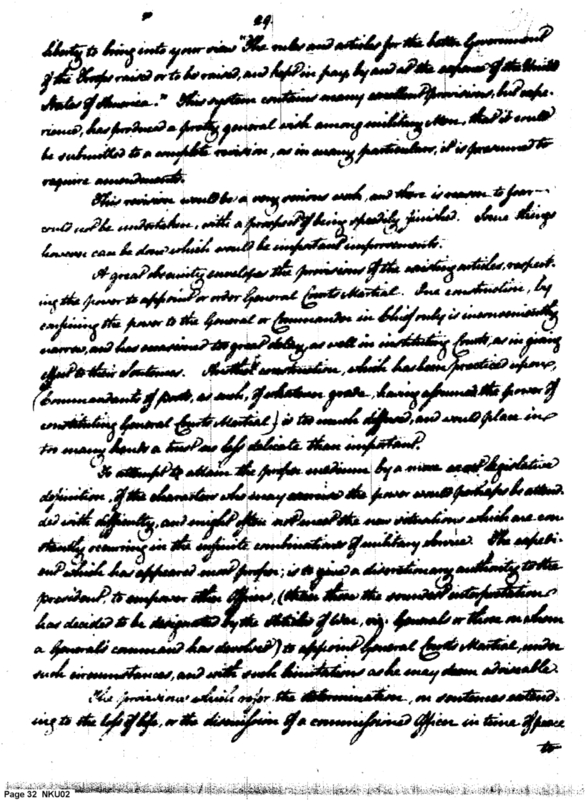 29.
liberty to bring into your view "The rules and articles for the better Government
of the Troops raised or to be raised, and kept in pay by and at the expence of the United
States of America." This system contains many excellent provisions, but expe-
rience, has produced a pretty general wish among military Men, that it could
be submitted to a complete revision, as in many particulars, it is presumed to
require amendments.
This revision would be a very serious work, and there is reason to fear
could not be undertaken, with a prospect of being speedily finished. Some things
however can be done which would be important improvements.
A great obscurity envelopes the provisions of the existing articles, respect-
ing the power to appoint or order General Courts Martial. One construction, by
confining the power to the General or Commander in Chief only is inconveniently
narrow, and has occasioned too great delay, as well in instituting Courts, as in giving
effect to their Sentences. Another construction, which has been practiced upon,
(Commandants of posts, as such, of whatever grade, having assumed the power of
constituting General Courts Martial) is too much diffused, and would place in
too many hands a trust no less delicate than important.
To attempt to attain the proper medium by a more exact legislative
definition, of the characters who may exercise the power would perhaps be attend-
ed with difficulty, and might often not meet the new situations which are con-
stantly occurring in the infinite combinations of military service. The expedi-
ent which has appeared most proper; is to give a discretionary authority to the
president, to empower other Officers, (than those the soundest interpretation
has decided to be designated by the Articles of War, viz. Generals or those on whom
a General's command has devolved) to appoint General Courts Martial, under
such circumstances, and with such limitations as he may deem adviseable.
The provisions which refer the determination, on sentences extend-
ing to the loss of life, or the dismission of a commissioned Officer in time of peace
to
Page 32 NKU02